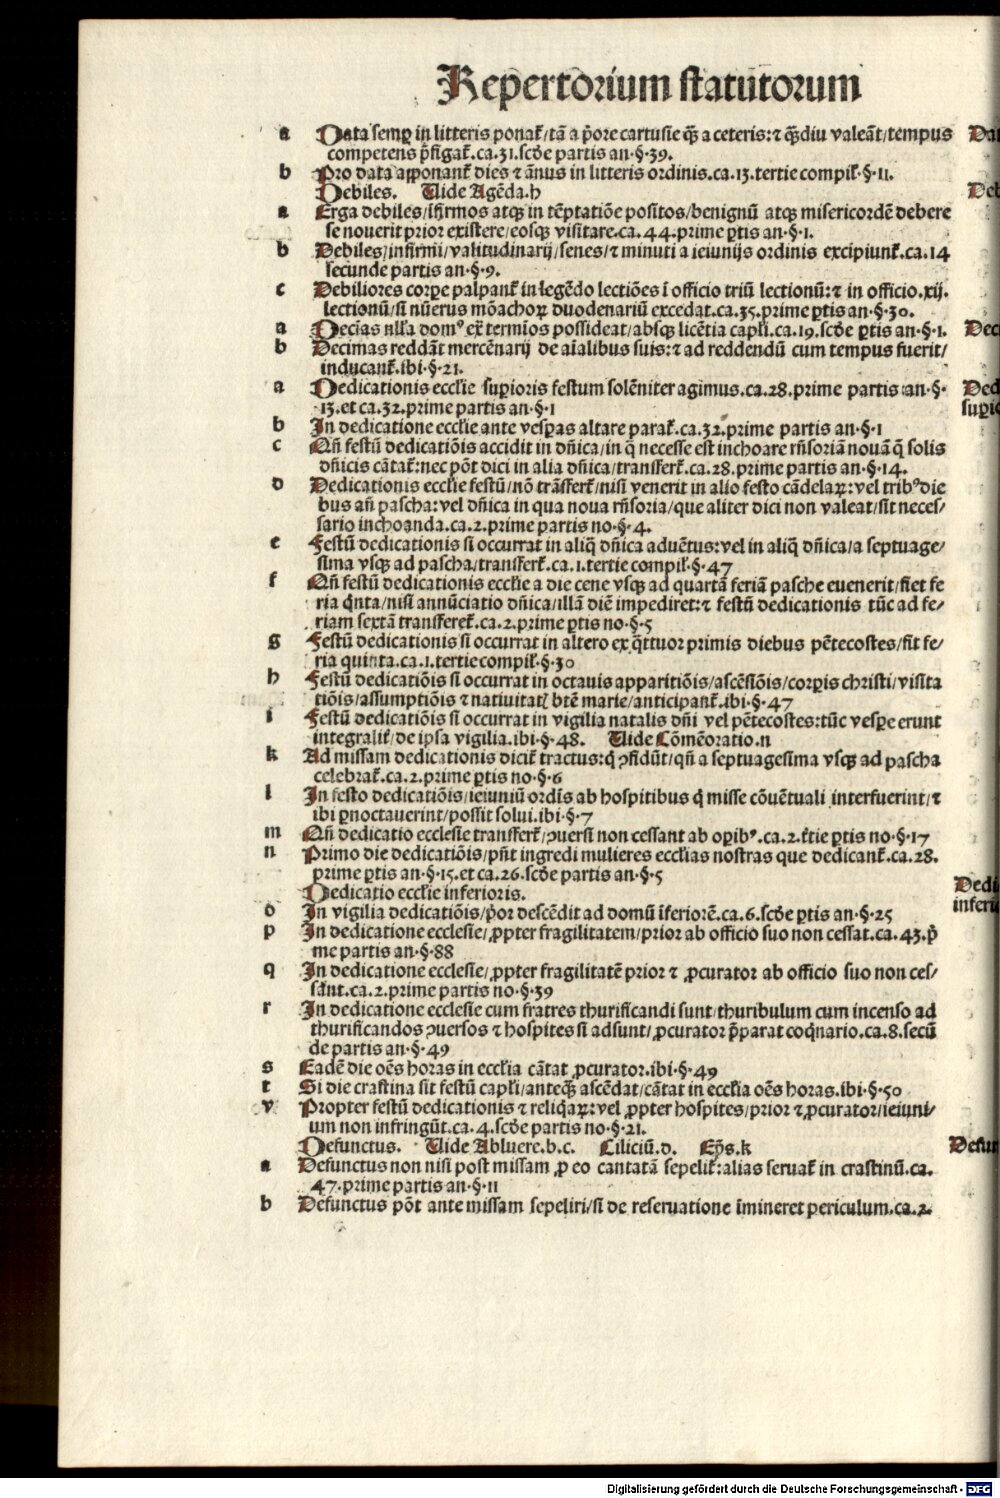 Repertorium statutorum
a Data semꝑ in litteris ponat̃/tã a p̃ore cartusie q̃ꝫ a ceteris:⁊ q̃ꝫdiu valeãt/tempus
competens p̃figat̃.ca.31.scðe partis an·§·39.
b Pro data apponant̃ dies ⁊ ãnus in litteris ordinis.ca.13.tertie compil̃·§·11.
Debiles. Uide Agẽda.h
a Erga debiles/ĩfirmos atqꝫ in tẽptatiõe positos/benignũ atqꝫ misericordẽ debere
se nouerit prior existere/eosqꝫ visitare.ca.44.prime ꝑtis an·§·1.
b Debiles/infirmi/valitudinarij/senes/⁊ minuti a ieiunijs ordinis excipiunt̃.ca.14
secunde partis an·§·9.
c Debiliores corꝑe palpant̃ in legẽdo lectiões ĩ officio triũ lectionũ:⁊ in officio.xij.
lectionũ/si nũerus mõachoꝝ duodenariũ excedat.ca.35.prime ꝑtis an·§·30.
a Decĩas nłła domꝰ ex̃ termĩos possideat/absqꝫ licẽtia capłi.ca.19.scðe ꝑtis an·§·1.
b Decimas reddãt mercẽnarij de aĩalibus suis:⁊ ad reddendũ cum tempus fuerit/
inducant̃.ibi·§·21.
a Dedicationis ecclie suꝑioris festum solẽniter agimus.ca.28.prime partis an·§·
13.et ca.32.prime partis an·§·1
b In dedicatione ecclie ante vesꝑas altare parat̃.ca.32.prime partis an·§·1
c Qñ festũ dedicatiõis accidit in dñica/in q̃ necesse est inchoare rñsoriã nouã q̃ solis
dñicis cãtat̃:nec põt dici in alia dñica/transfert̃.ca.28.prime partis an·§·14.
d Dedicationis ecclie festũ/nõ trãsfert̃/nisi venerit in alio festo cãdelaꝝ:vel tribꝰ die
bus añ pascha:vel dñica in qua noua rñsoria/que aliter dici non valeat/sit neces/
sario inchoanda.ca.2.prime partis no·§·4.
e Festũ dedicationis si occurrat in aliq̃ dñica aduẽtus:vel in aliq̃ dñica/a septuage/
sima vsqꝫ ad pascha/transfert̃.ca.1.tertie compil̃·§·47
f Qñ festũ dedicationis ecclie a die cene vsqꝫ ad quartã feriã pasche euenerit/fiet fe
ria q̃nta/nisi annũciatio dñica/illã diẽ impediret:⁊ festũ dedicationis tũc ad fe/
riam sextã transferet̃.ca.2.prime ꝑtis no·§·5
g Festũ dedicationis si occurrat in altero ex q̃ttuor primis diebus pẽtecostes/fit fe/
ria quinta.ca.1.tertie compil̃·§·30
h Festũ dedicatiõis si occurrat in octauis apparitiõis/ascẽsiõis/corꝑis christi/visita
tiõis/assumptiõis ⁊ natiuitatꝭ btẽ marie/anticipant̃.ibi·§·47
i Festũ dedicatiõis si occurrat in vigilia natalis dñi vel pẽtecostes:tũc vesꝑe erunt
integralit̃/de ipsa vigilia.ibi·§·48. Uide Cõmẽoratio.n
k Ad missam dedicationis dicit̃ tractus:q̃ ꝯfidũt/qñ a septuagesima vsqꝫ ad pascha
celebrat̃.ca.2.prime ꝑtis no·§·6
l In festo dedicatiõis/ieiuniũ ordĩs ab hospitibus q̃ misse cõuẽtuali interfuerint/⁊
ibi ꝑnoctauerint/possit solui.ibi·§·7
m Qñ dedicatio ecclesie transfert̃/ꝯuersi non cessant ab oꝑibꝰ.ca.2.t̃tie ꝑtis no·§·17
n Primo die dedicatiõis/pñt ingredi mulieres ecclias nostras que dedicant̃.ca.28.
prime ꝑtis an·§·15.et ca.26.scðe partis an·§·5
Dedicatio ecclie inferioris.
o In vigilia dedicatiõis/p̃or descẽdit ad domũ ĩferiorẽ.ca.6.scðe ꝑtis an·§·25
p In dedicatione ecclesie/ꝓpter fragilitatem/prior ab officio suo non cessat.ca.43.p̃
me partis an·§·88
q In dedicatione ecclesie/ꝓpter fragilitatẽ prior ⁊ ꝓcurator ab officio suo non ces/
sãnt.ca.2.prime partis no·§·39
r In dedicatione ecclesie cum fratres thurificandi sunt/thuribulum cum incenso ad
thurificandos ꝯuersos ⁊ hospites si adsunt/ꝓcurator p̃parat coq̃nario.ca.8.secũ
de partis an·§·49
s Eadẽ die oẽs horas in ecclia cãtat ꝓcurator.ibi·§·49
t Si die crastina sit festũ capłi/anteq̃ꝫ ascẽdat/cãtat in ecclia oẽs horas.ibi·§·50
v Propter festũ dedicationis ⁊ reliq̃aꝝ:vel ꝓpter hospites/prior ⁊ ꝓcurator/ieiuni/
um non infringũt.ca.4.scðe partis no·§·21.
Defunctus. Uide Abluere.b.c. Ciliciũ.d. Ep̃s.k
a Defunctus non nisi post missam ꝓ eo cantatã sepelit̃:alias seruat̃ in crastinũ.ca.
47.prime partis an·§·11
b Defunctus põt ante missam sepeliri/si de reseruatione ĩmineret periculum.ca.2.
Digitalisierung gefördert durch die Deutsche Forschungsgemeinschaft - DFG